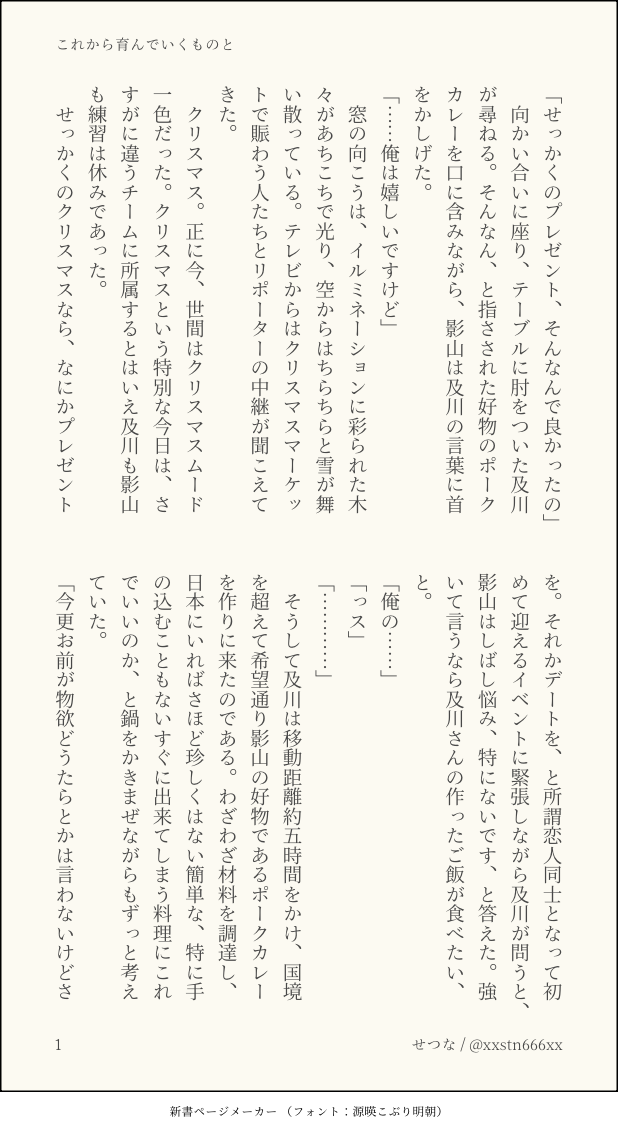 これから育んでいくものと
「せっかくのプレゼント、そんなんで良かったの」
　向かい合いに座り、テーブルに肘をついた及川
が尋ねる。そんなん、と指さされた好物のポーク
カレーを口に含みながら、影山は及川の言葉に首
をかしげた。
「……俺は嬉しいですけど」
　窓の向こうは、イルミネーションに彩られた木
々があちこちで光り、空からはちらちらと雪が舞
い散っている。テレビからはクリスマスマーケッ
トで賑わう人たちとリポーターの中継が聞こえて
きた。
　クリスマス。正に今、世間はクリスマスムード
一色だった。クリスマスという特別な今日は、さ
すがに違うチームに所属するとはいえ及川も影山
も練習は休みであった。
　せっかくのクリスマスなら、なにかプレゼント
を。それかデートを、と所謂恋人同士となって初
めて迎えるイベントに緊張しながら及川が問うと、
影山はしばし悩み、特にないです、と答えた。強
いて言うなら及川さんの作ったご飯が食べたい、
と。
「俺の……」
「っス」
「…………」
　そうして及川は移動距離約五時間をかけ、国境
を超えて希望通り影山の好物であるポークカレー
を作りに来たのである。わざわざ材料を調達し、
日本にいればさほど珍しくはない簡単な、特に手
の込むこともないすぐに出来てしまう料理にこれ
でいいのか、と鍋をかきまぜながらもずっと考え
ていた。
「今更お前が物欲どうたらとかは言わないけどさ
1
せつな / @xxstn666xx
新書ページメーカー （フォント：源暎こぶり明朝）